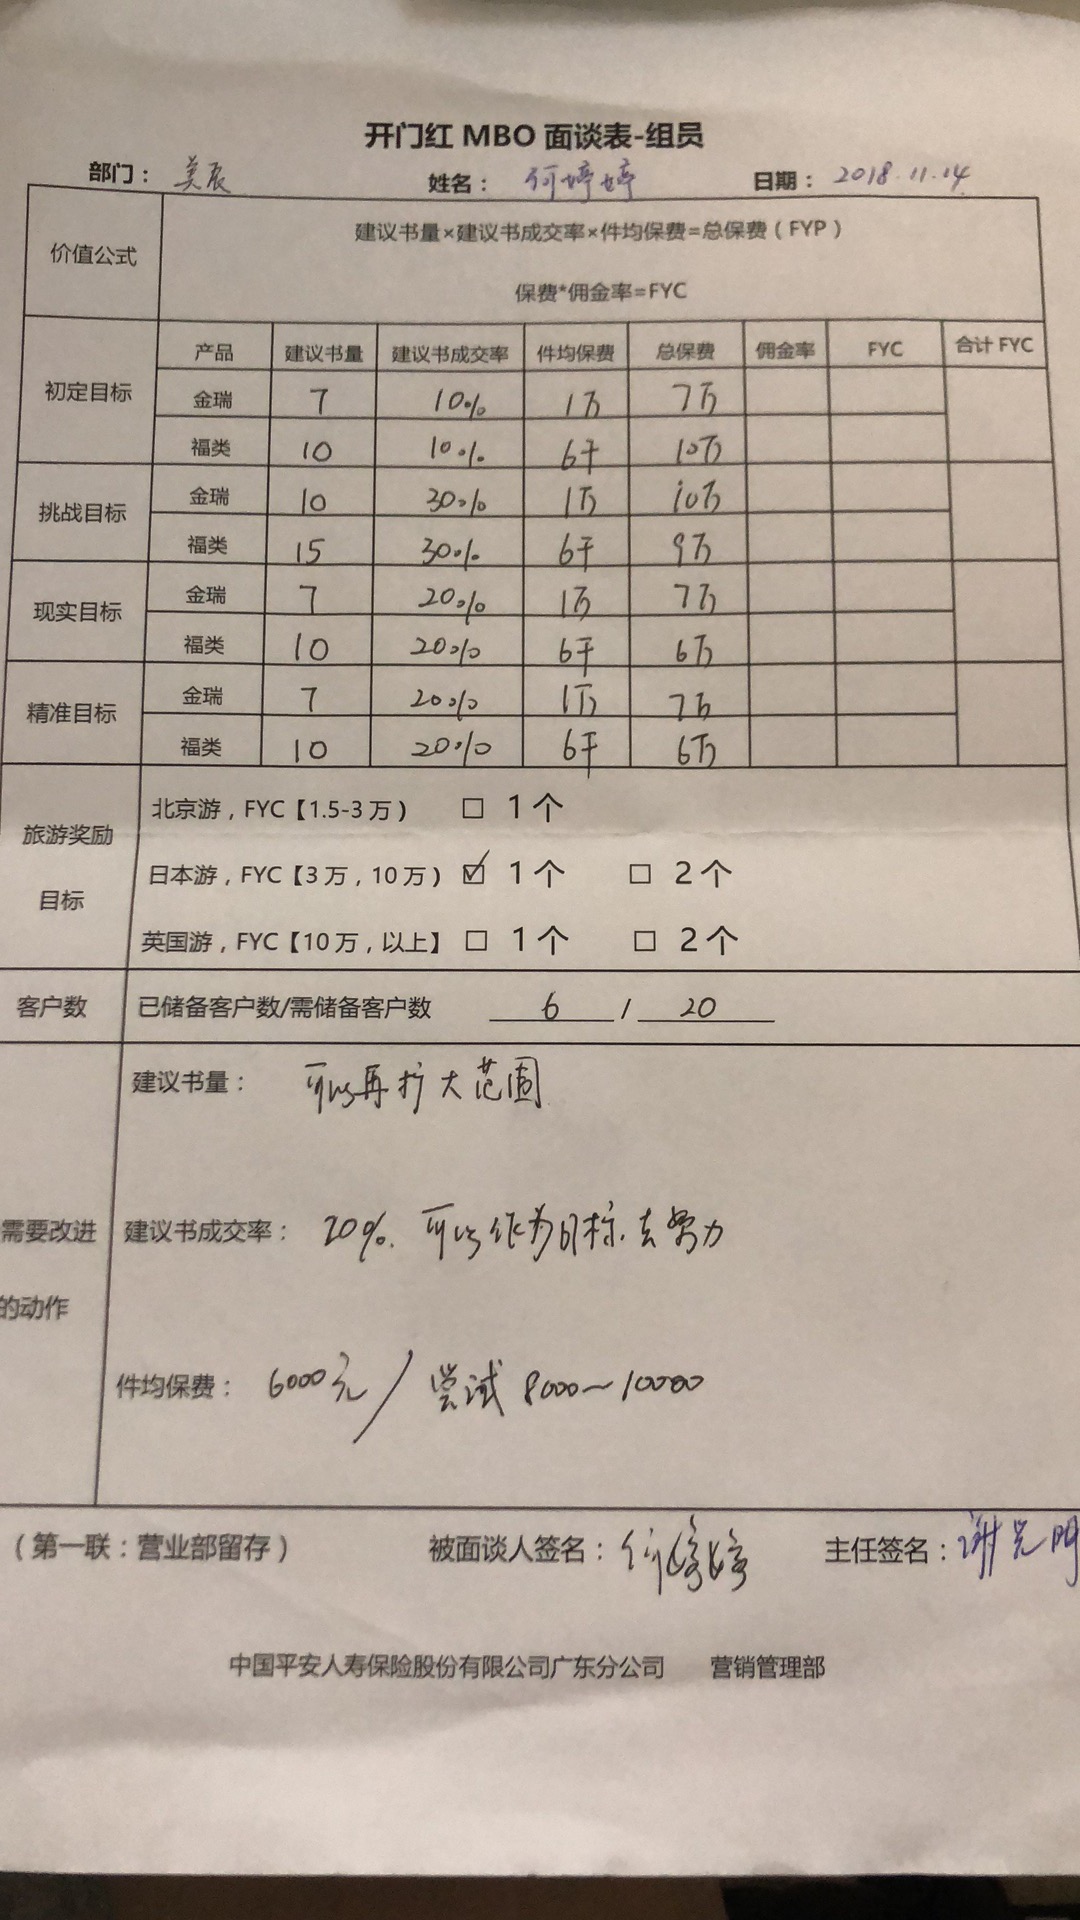 开门红 MBO 面谈表-组员
部门： 美辰 姓名： 何婷婷 日期： 2018.11.14
价值公式 建议书量×建议书成交率×件均保费=总保费（FYP）
保费*佣金率=FYC
产品 建议书量 建议书成交率 件均保费 总保费 佣金率 FYC 合计 FYC
初定目标
金瑞 7 10% 1万 7万
福类 10 10% 6千 10万
挑战目标
金瑞 10 30% 1万 10万
福类 15 30% 6千 9万
现实目标
金瑞 7 20% 1万 7万
福类 10 20% 6千 6万
精准目标
金瑞 7 20% 1万 7万
福类 10 20% 6千 6万
旅游奖励
目标
北京游，FYC【1.5-3 万） □ 1 个
日本游，FYC【3 万，10 万） ☑ 1 个 □ 2 个
英国游，FYC【10 万，以上】 □ 1 个 □ 2 个
客户数 已储备客户数/需储备客户数 6 / 20
需要改进
的动作
建议书量： 可以再扩大范围
建议书成交率： 20%. 可以作为目标.去努力
件均保费： 6000元 / 尝试 8000~10000
（第一联：营业部留存） 被面谈人签名：何婷婷 主任签名：谢光明
中国平安人寿保险股份有限公司广东分公司 营销管理部